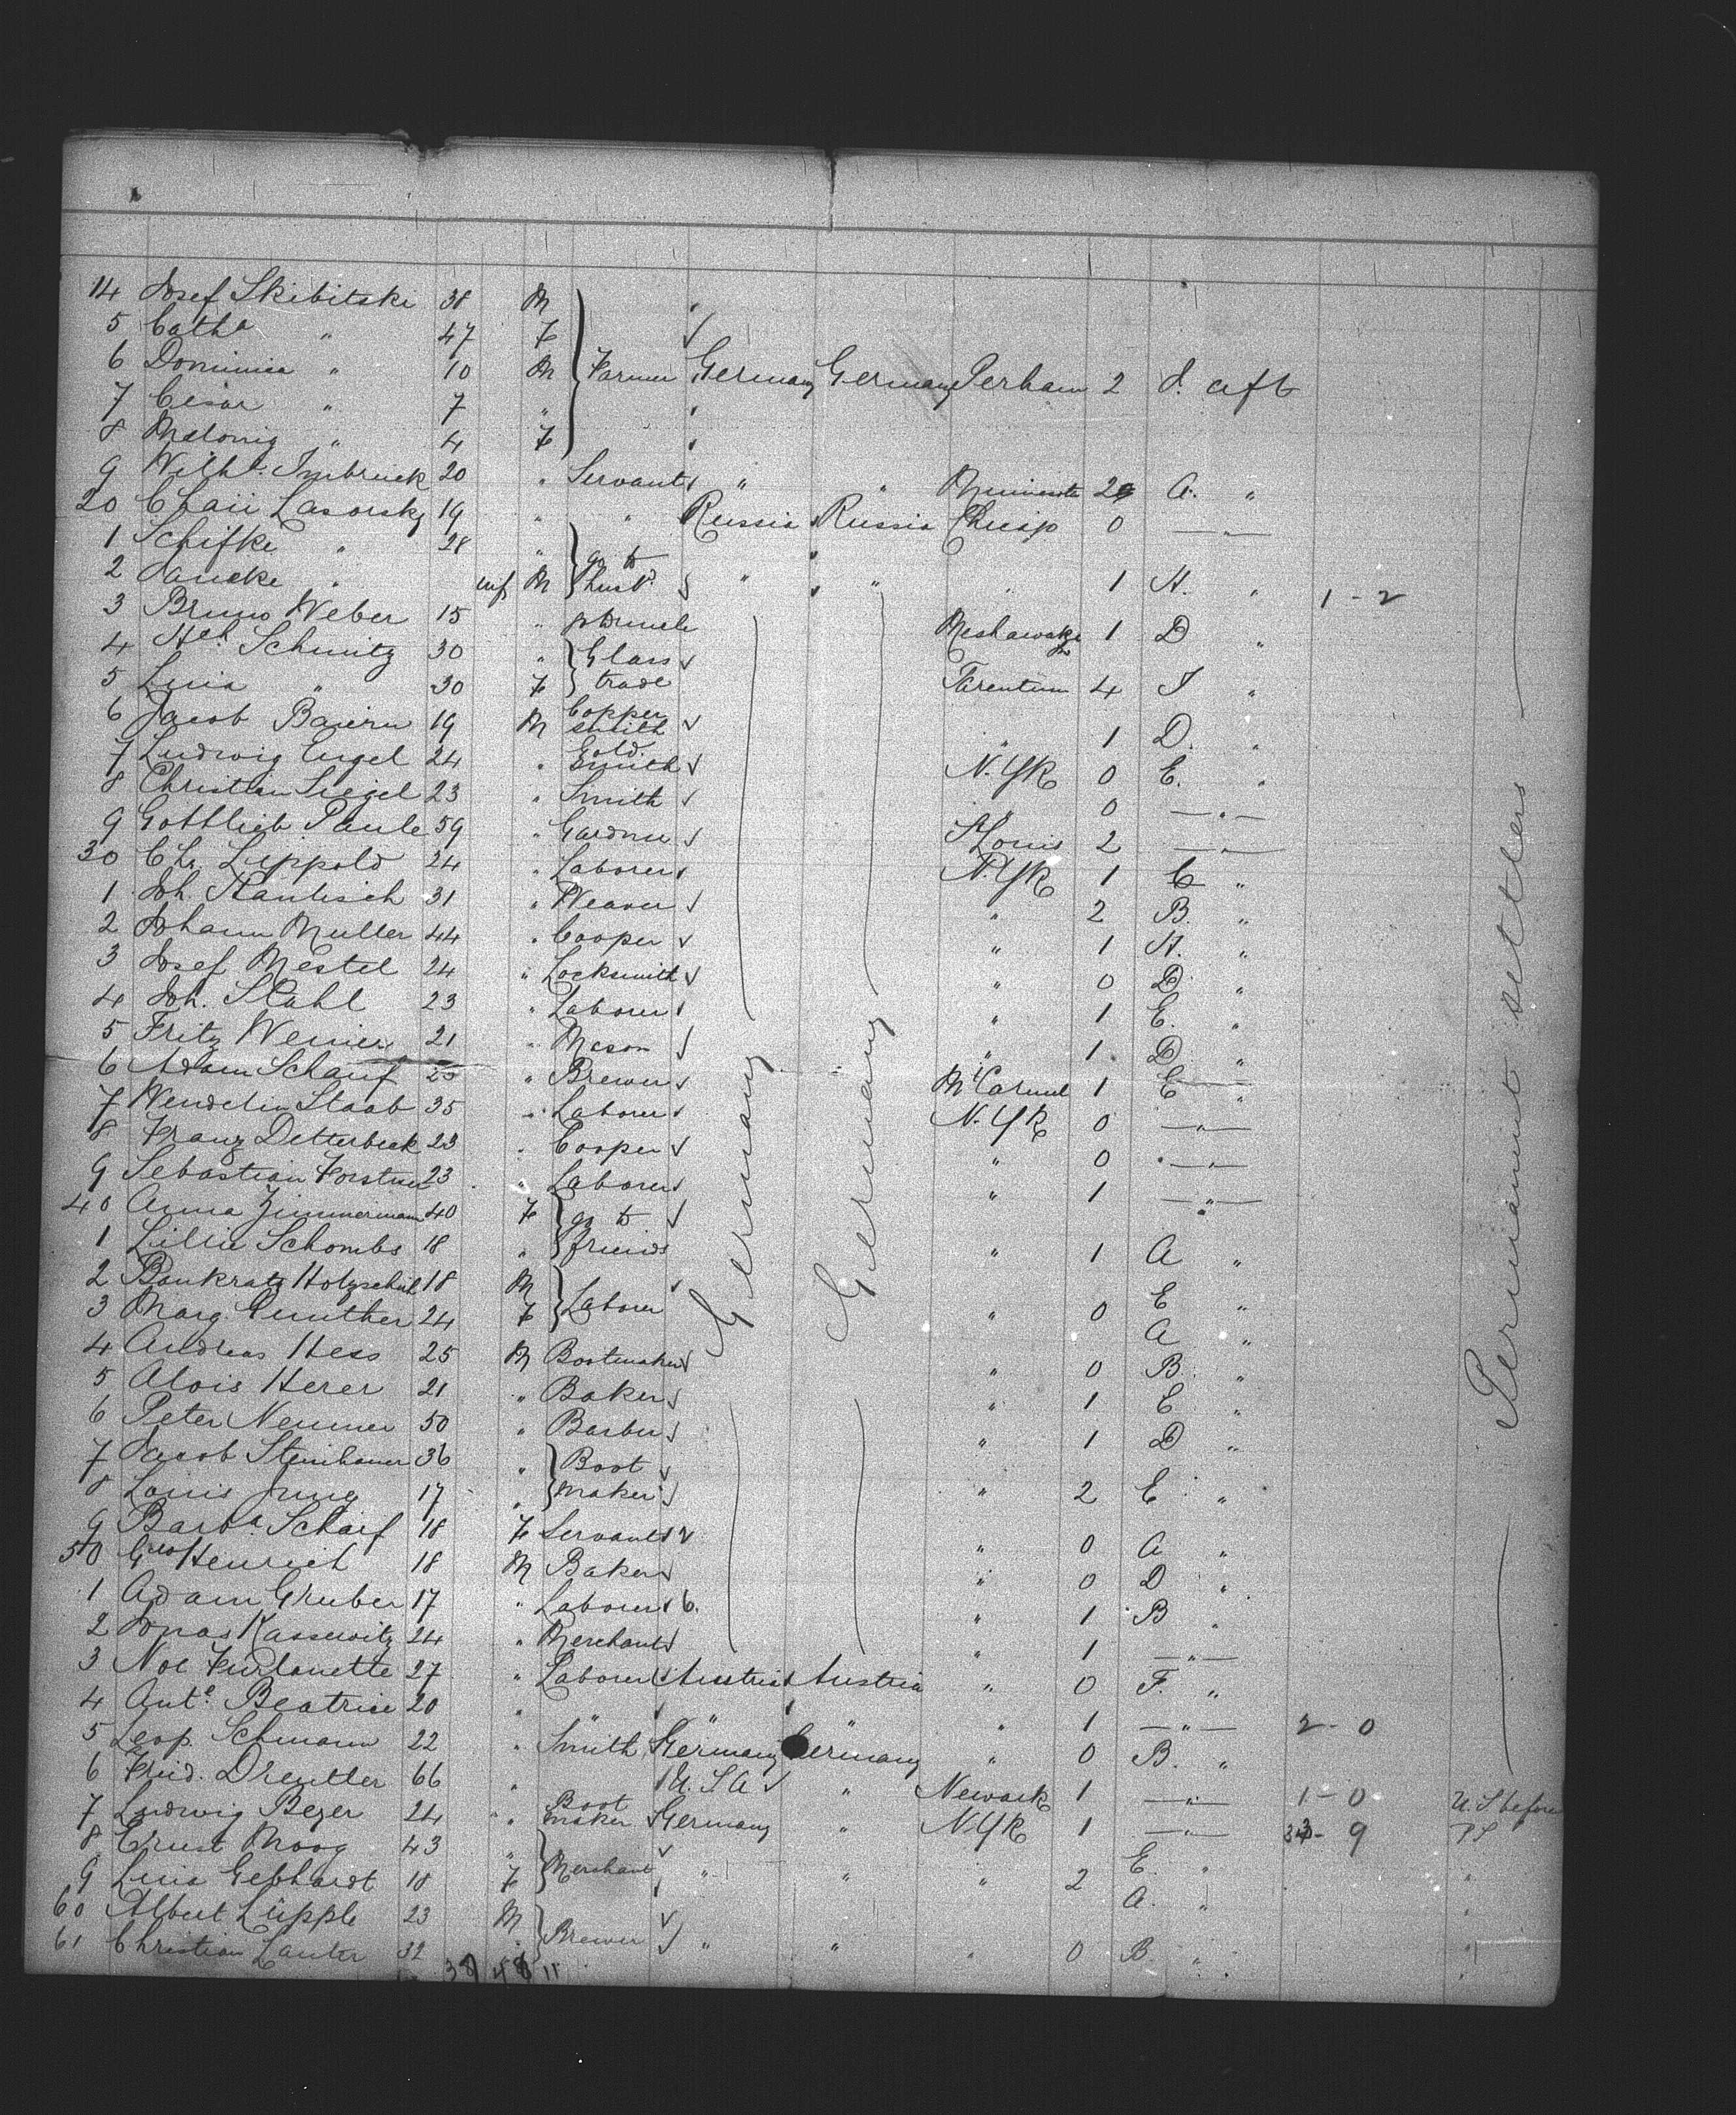 14 Josef Skibitski 38 M
5 Cath^a " 47 F
6 Dominica " 10 M Farmer Germany Germany Perham 2 d. aft
7 Cesar " 7 "
8 " 4 F
9 Wilh^e. 20 " Servant " " Minnesota 2 A. "
20 Lasorsky 19 " " Russia Russia 0 — " —
1 Schifke " 28 " go to
2 " inf M husb^d. " " " 1 H. " 1 - 2
3 Bruno Weber 15 " to uncle Meshawaka 1 D "
4 H^ch Schmitz 30 " Glass
5 Lina " 30 F trade Tarentum 4 "
6 Jacob 19 M Copper smith " 1 D. "
7 Ludwig Engel 24 " Gold. Smith N. Yk 0 E. "
8 Christian Siegel 23 " Smith " 0 — " —
9 Gottlieb Paule 59 " Gardner St Louis 2 — " —
30 Ch. Leppold 24 " Laborer N. Yk 1 C "
1 Joh. 31 " Weaver " 2 B. "
2 Johann Muller 44 " Cooper " 1 H. "
3 Josef Mestel 24 " Locksmith " 0 D. "
4 Joh. Stahl 23 " Laborer " 1 E. "
5 Fritz 21 " Mason " 1 D "
6 Adam Scharf " Brewer M^t Carmel 1 E "
7 Wendelin Staab 35 " Laborer N. Yk 0 — " —
8 Franz Detterbeck 23 " Cooper " 0 — " —
9 Sebastian Forstner 23 " Laborer " 1 — " —
40 Anna Zimmermann 40 F go to
1 Lillie Schombs 18 " friends " 1 A "
2 Pankratz 18 M Laborer E "
3 Marg. Gunther 24 F " 0 A "
4 Andreas Hess 25 M Bootmaker " 0 B. "
5 Alois Herer 21 " Baker " 1 E "
6 Peter 50 " Barber " 1 D "
7 Jacob Steinhauer 36 " Boot
8 Louis Jung 17 " maker " 2 E "
9 Barb^a Scharf 18 F Servant " 0 A "
50 Heinrich 18 M Baker " 0 D "
1 Adam Gruber 17 " Laborer " 1 B "
2 Jonas Kassewitz 24 " Merchant " 1 — " —
3 Noe Furlanette 27 " Laborer Austria Austria " 0 F. "
4 Ant^e. Beatrice 20 " " " " " 1 — " — 2 - 0
5 Leop. Schmann 22 " Smith Germany Germany " 0 B. "
6 Frid. 66 " U. S A " Newark 1 — " — 1 - 0 U. S before
7 Ludwig Bezer 24 " Boot maker Germany " N. Yk 1 — " — 9
8 Ernst Moog 43 " E. "
9 Lina Gebhardt 18 F Merchant " " " 2 A. " "
60 Albert Lüpple 23 M "
61 Christian Lauter 32 " Brewer " " " 0 B. " "
11
Germany
Germany
Permanent settlers